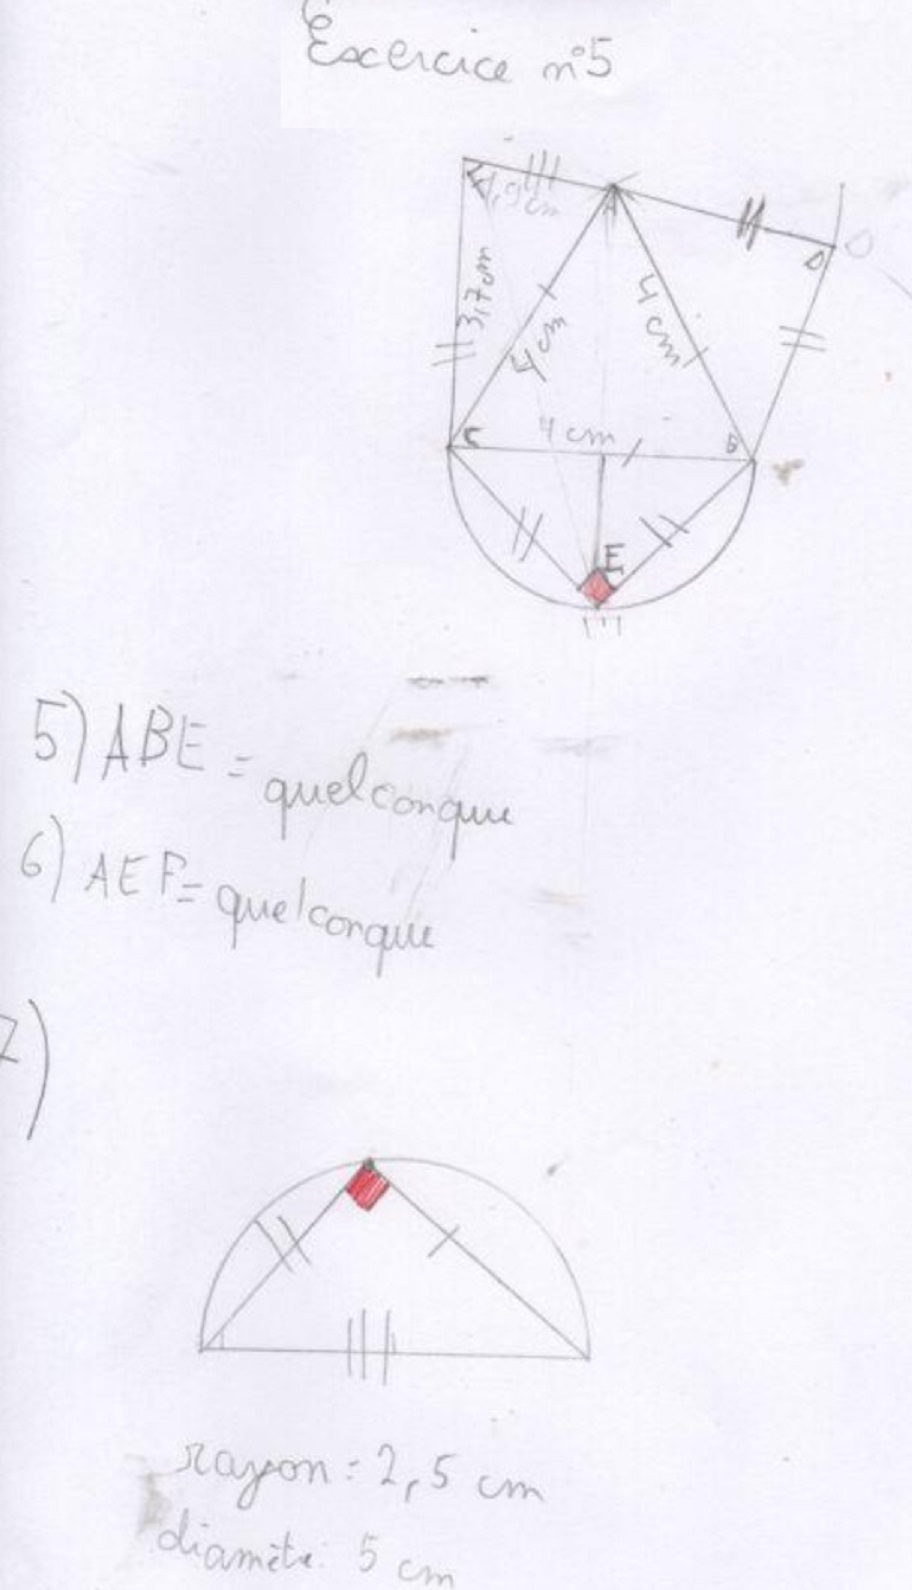 Excercice n°5
1,9 cm
A
D
3,7 cm
4 cm
4 cm
C
4 cm
B
E
5) ABE = quelconque
6) AEF = quelconque
7)
rayon : 2,5 cm
diamètr : 5 cm